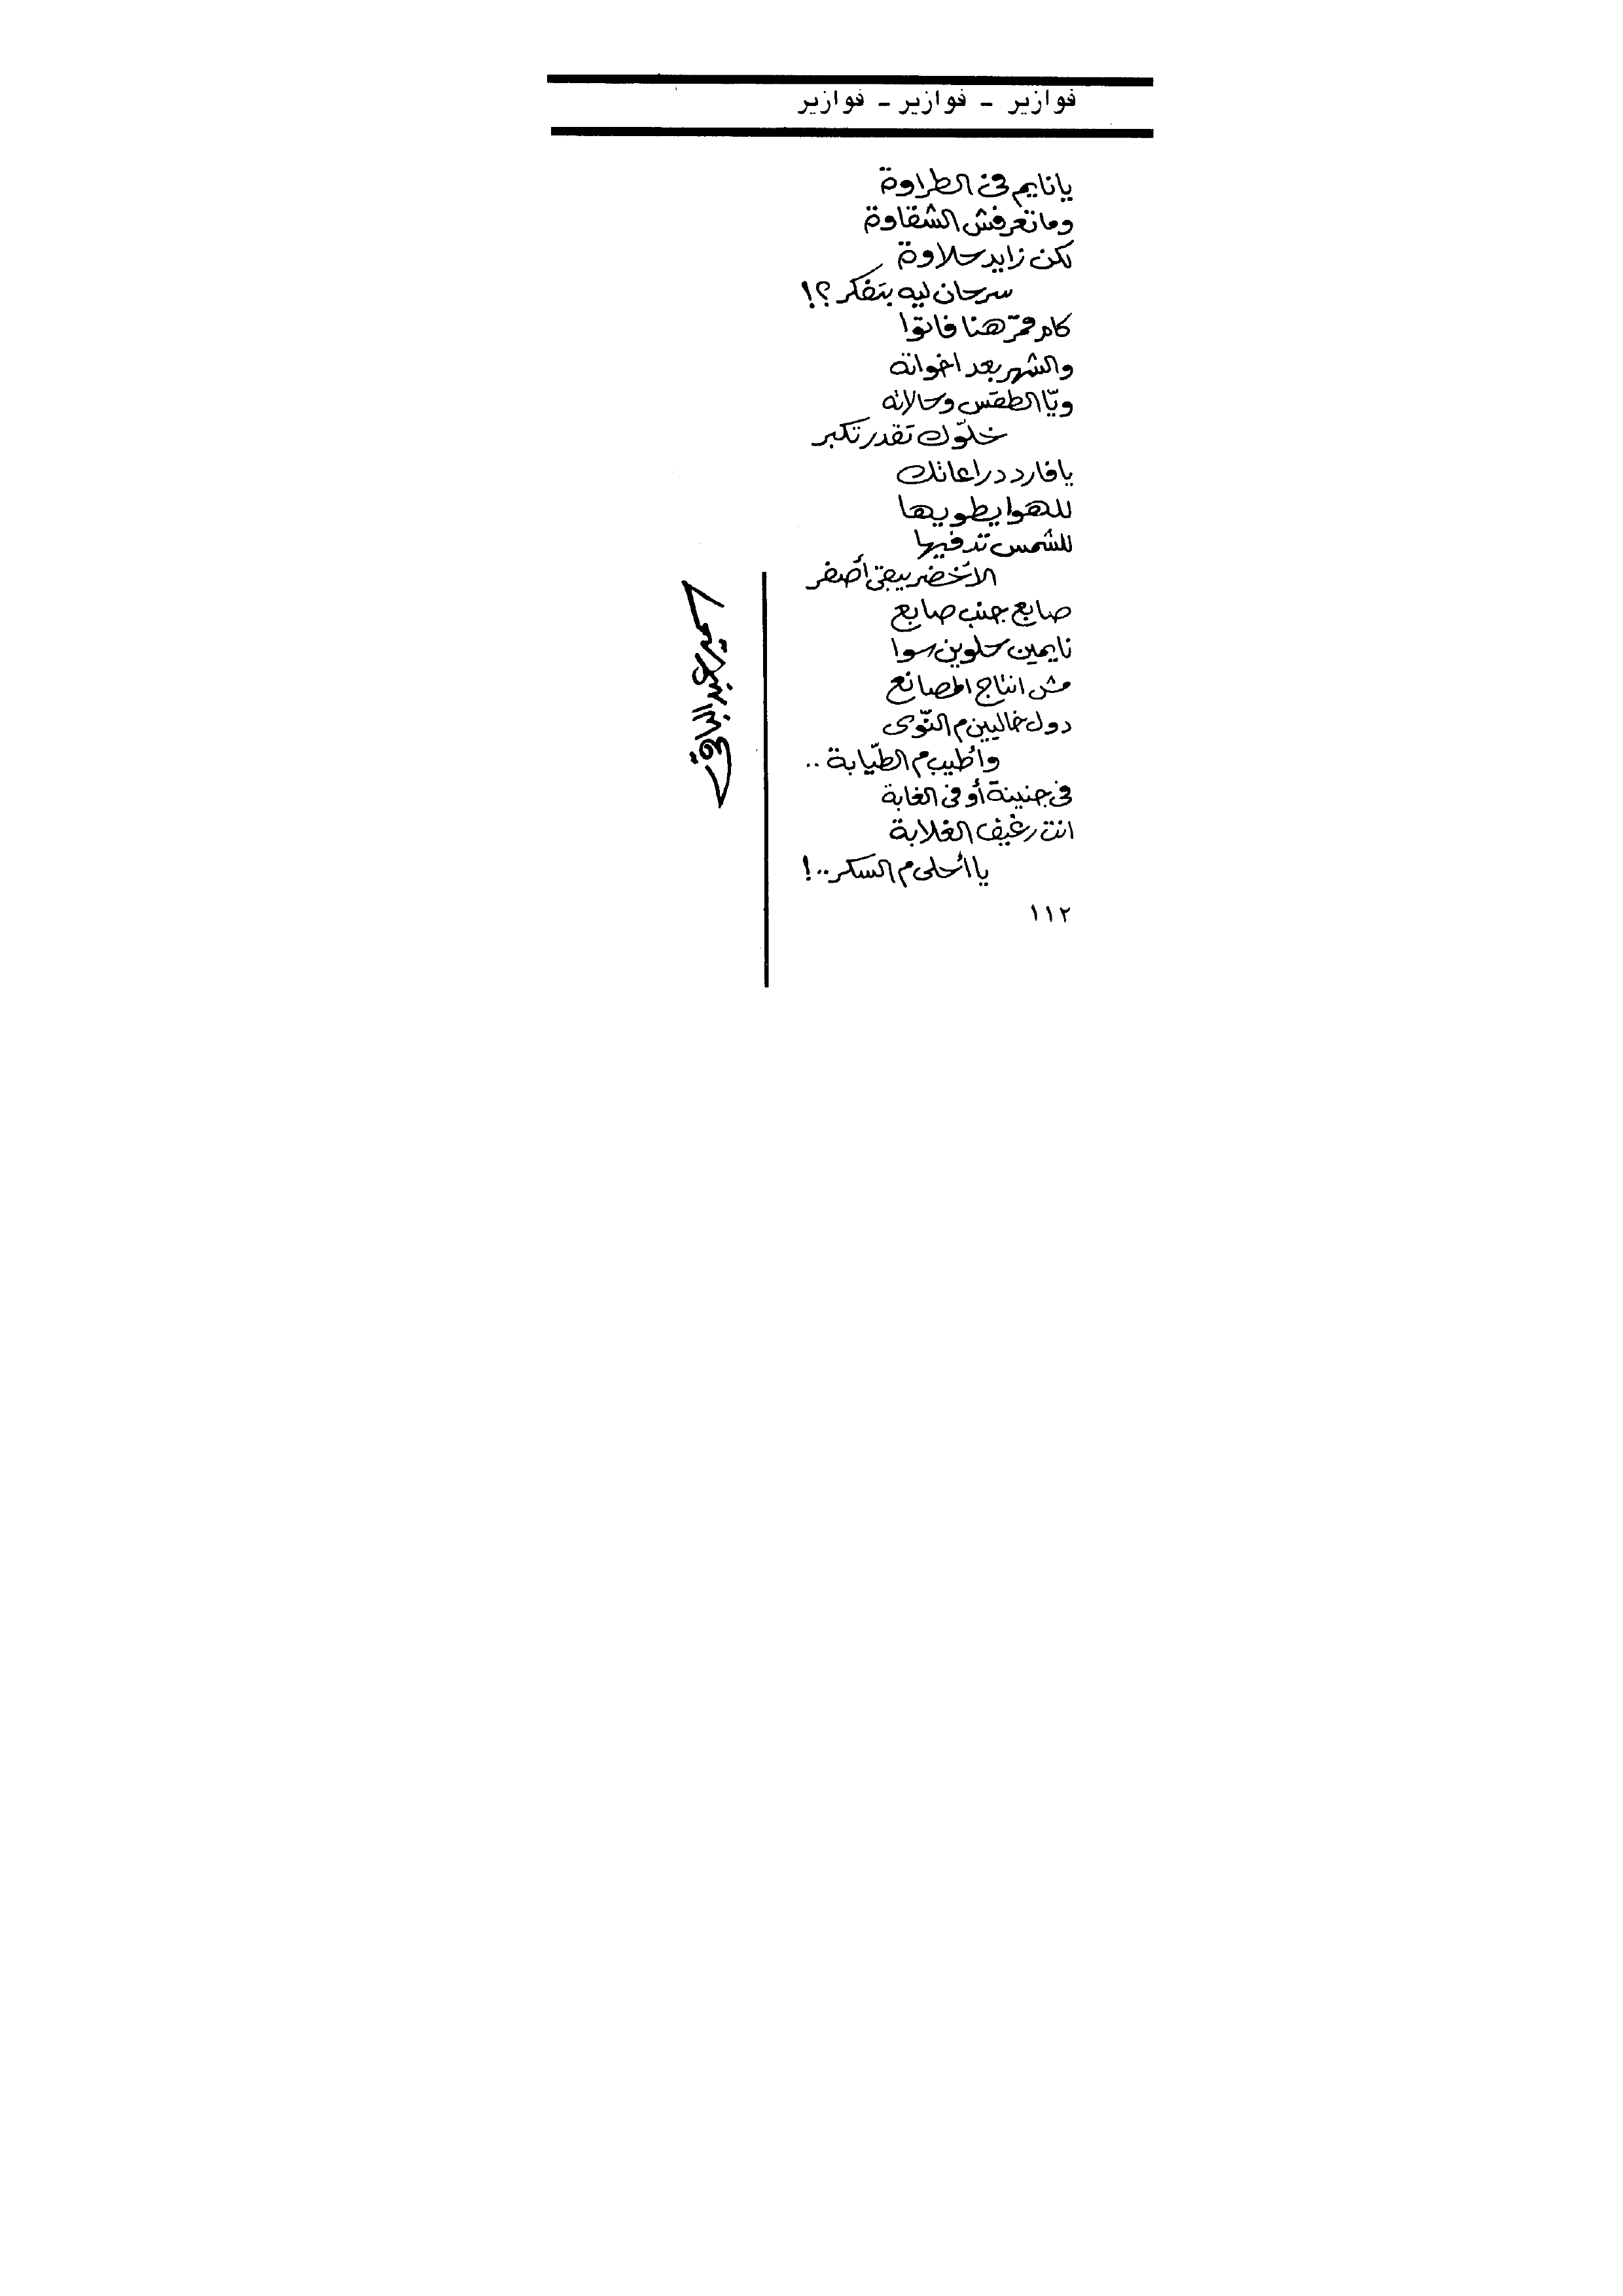 فوازير - فوازير - فوازير
يا نايم فى الطراوة
وما تعرفش الشقاوة
لكن زايد حلاوة
سرحان ليه بتفكر ؟!
كام قمر هنا فاتوا
والشهر بعد اخواته
ويّا الطقس وحالاته
خلّوك تقدر تكبر
يا فارد دراعاتك
للهوا يطويها
للشمس تدفيها
الأخضر يبقى أصفر
صابع جنب صابع
نايمين حلوين سوا
مش انتاج المصانع
دول خاليين م النّوى
وأطيب م الطيّابة ..
فى جنينة أو فى الغابة
انت رغيف الغلابة
يا أحلى م السكر ..!
١١٢
سمير عبد الباقى